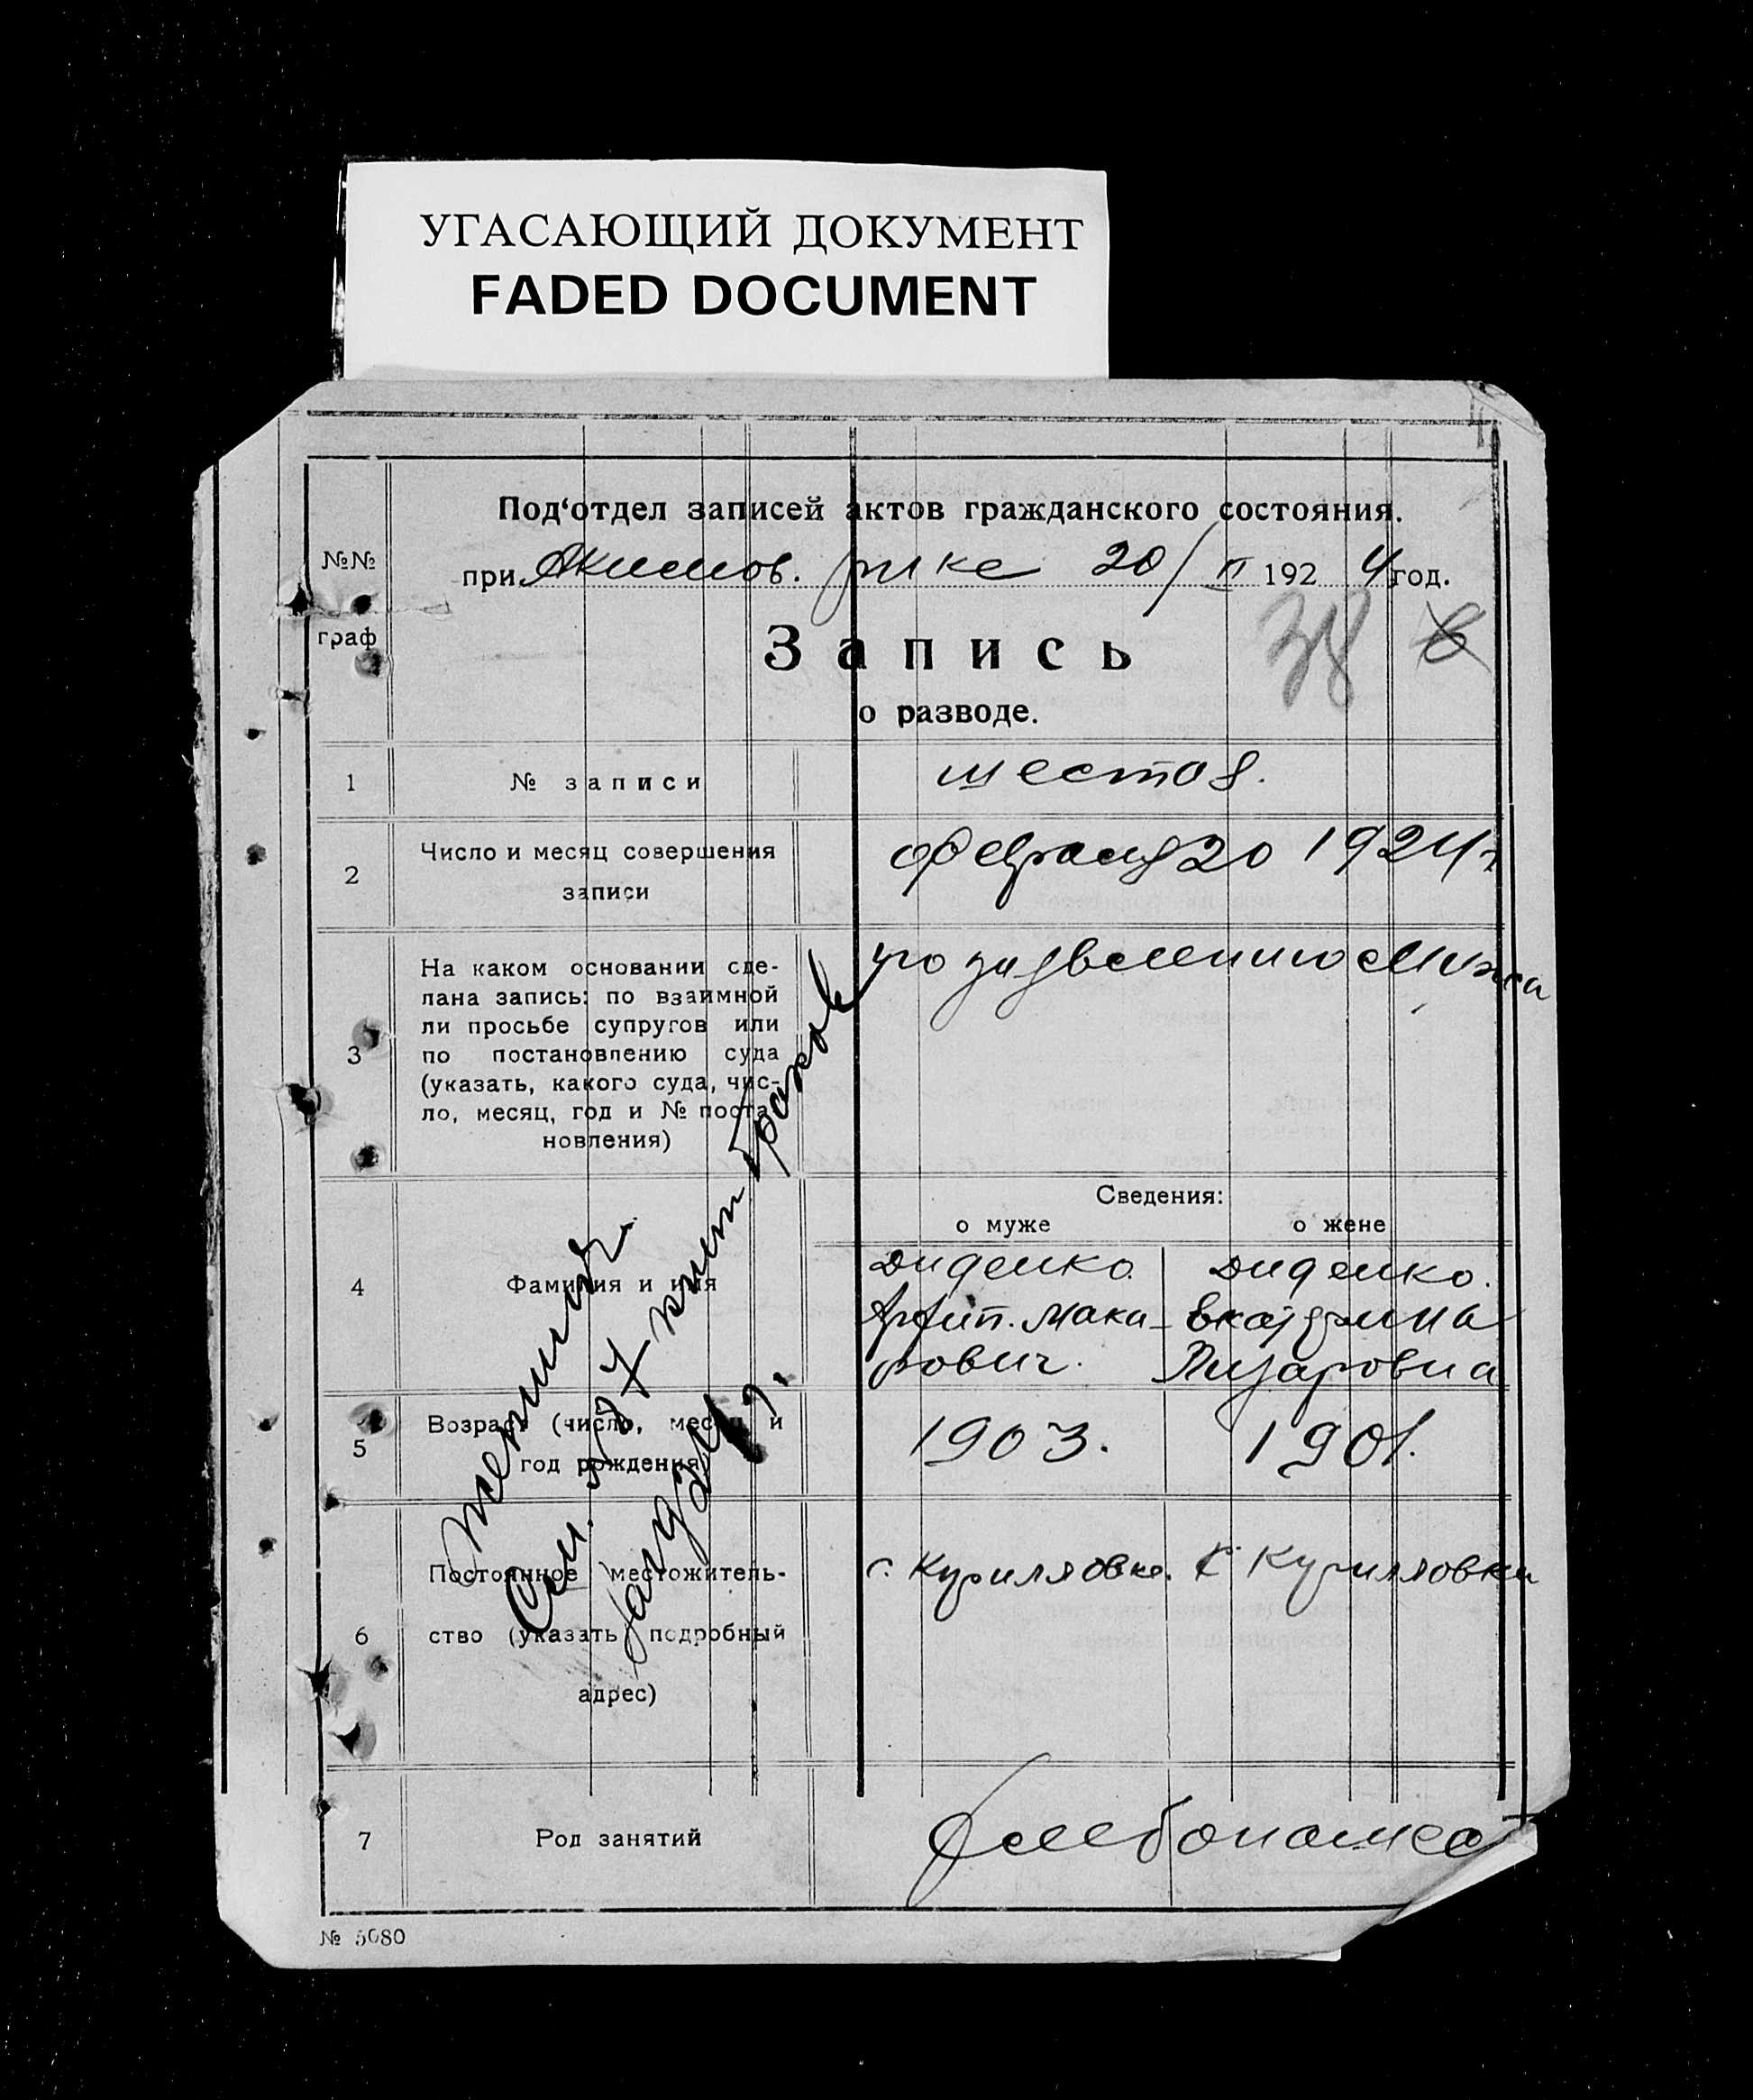 УГАСАЮЩИЙ ДОКУМЕНТ
FADED DOCUMENT
Под‘отдел записей актов гражданского состояния.
№№
граф
при Акимов. рике 20/II 1924 год.
38 6
Запись
о разводе.
1 № записи шестой.
2 Число и месяц совершения
записи
февраля 20 1924 г
3 На каком основании сде-
лана запись: по взаимной
ли просьбе супругов или
по постановлению суда
(указать, какого суда, чис-
ло, месяц, год и № поста-
новления)
по заявлению мужа
Сведения:
о муже о жене
4 Фамилия и имя
Диденко. Диденко.
Архип. Мака- Екатерина
рович. Лазаровна
5 Возраст (число, месяц и
год рождения
1903. 1901.
6 Постоянное местожитель-
ство (указать подробный
адрес)
с. Кирилловка. с Кирилловки
7 Род занятий
хлебопашест
Женился.
См. № 17 книг браков
за 1924 г.
№ 5080